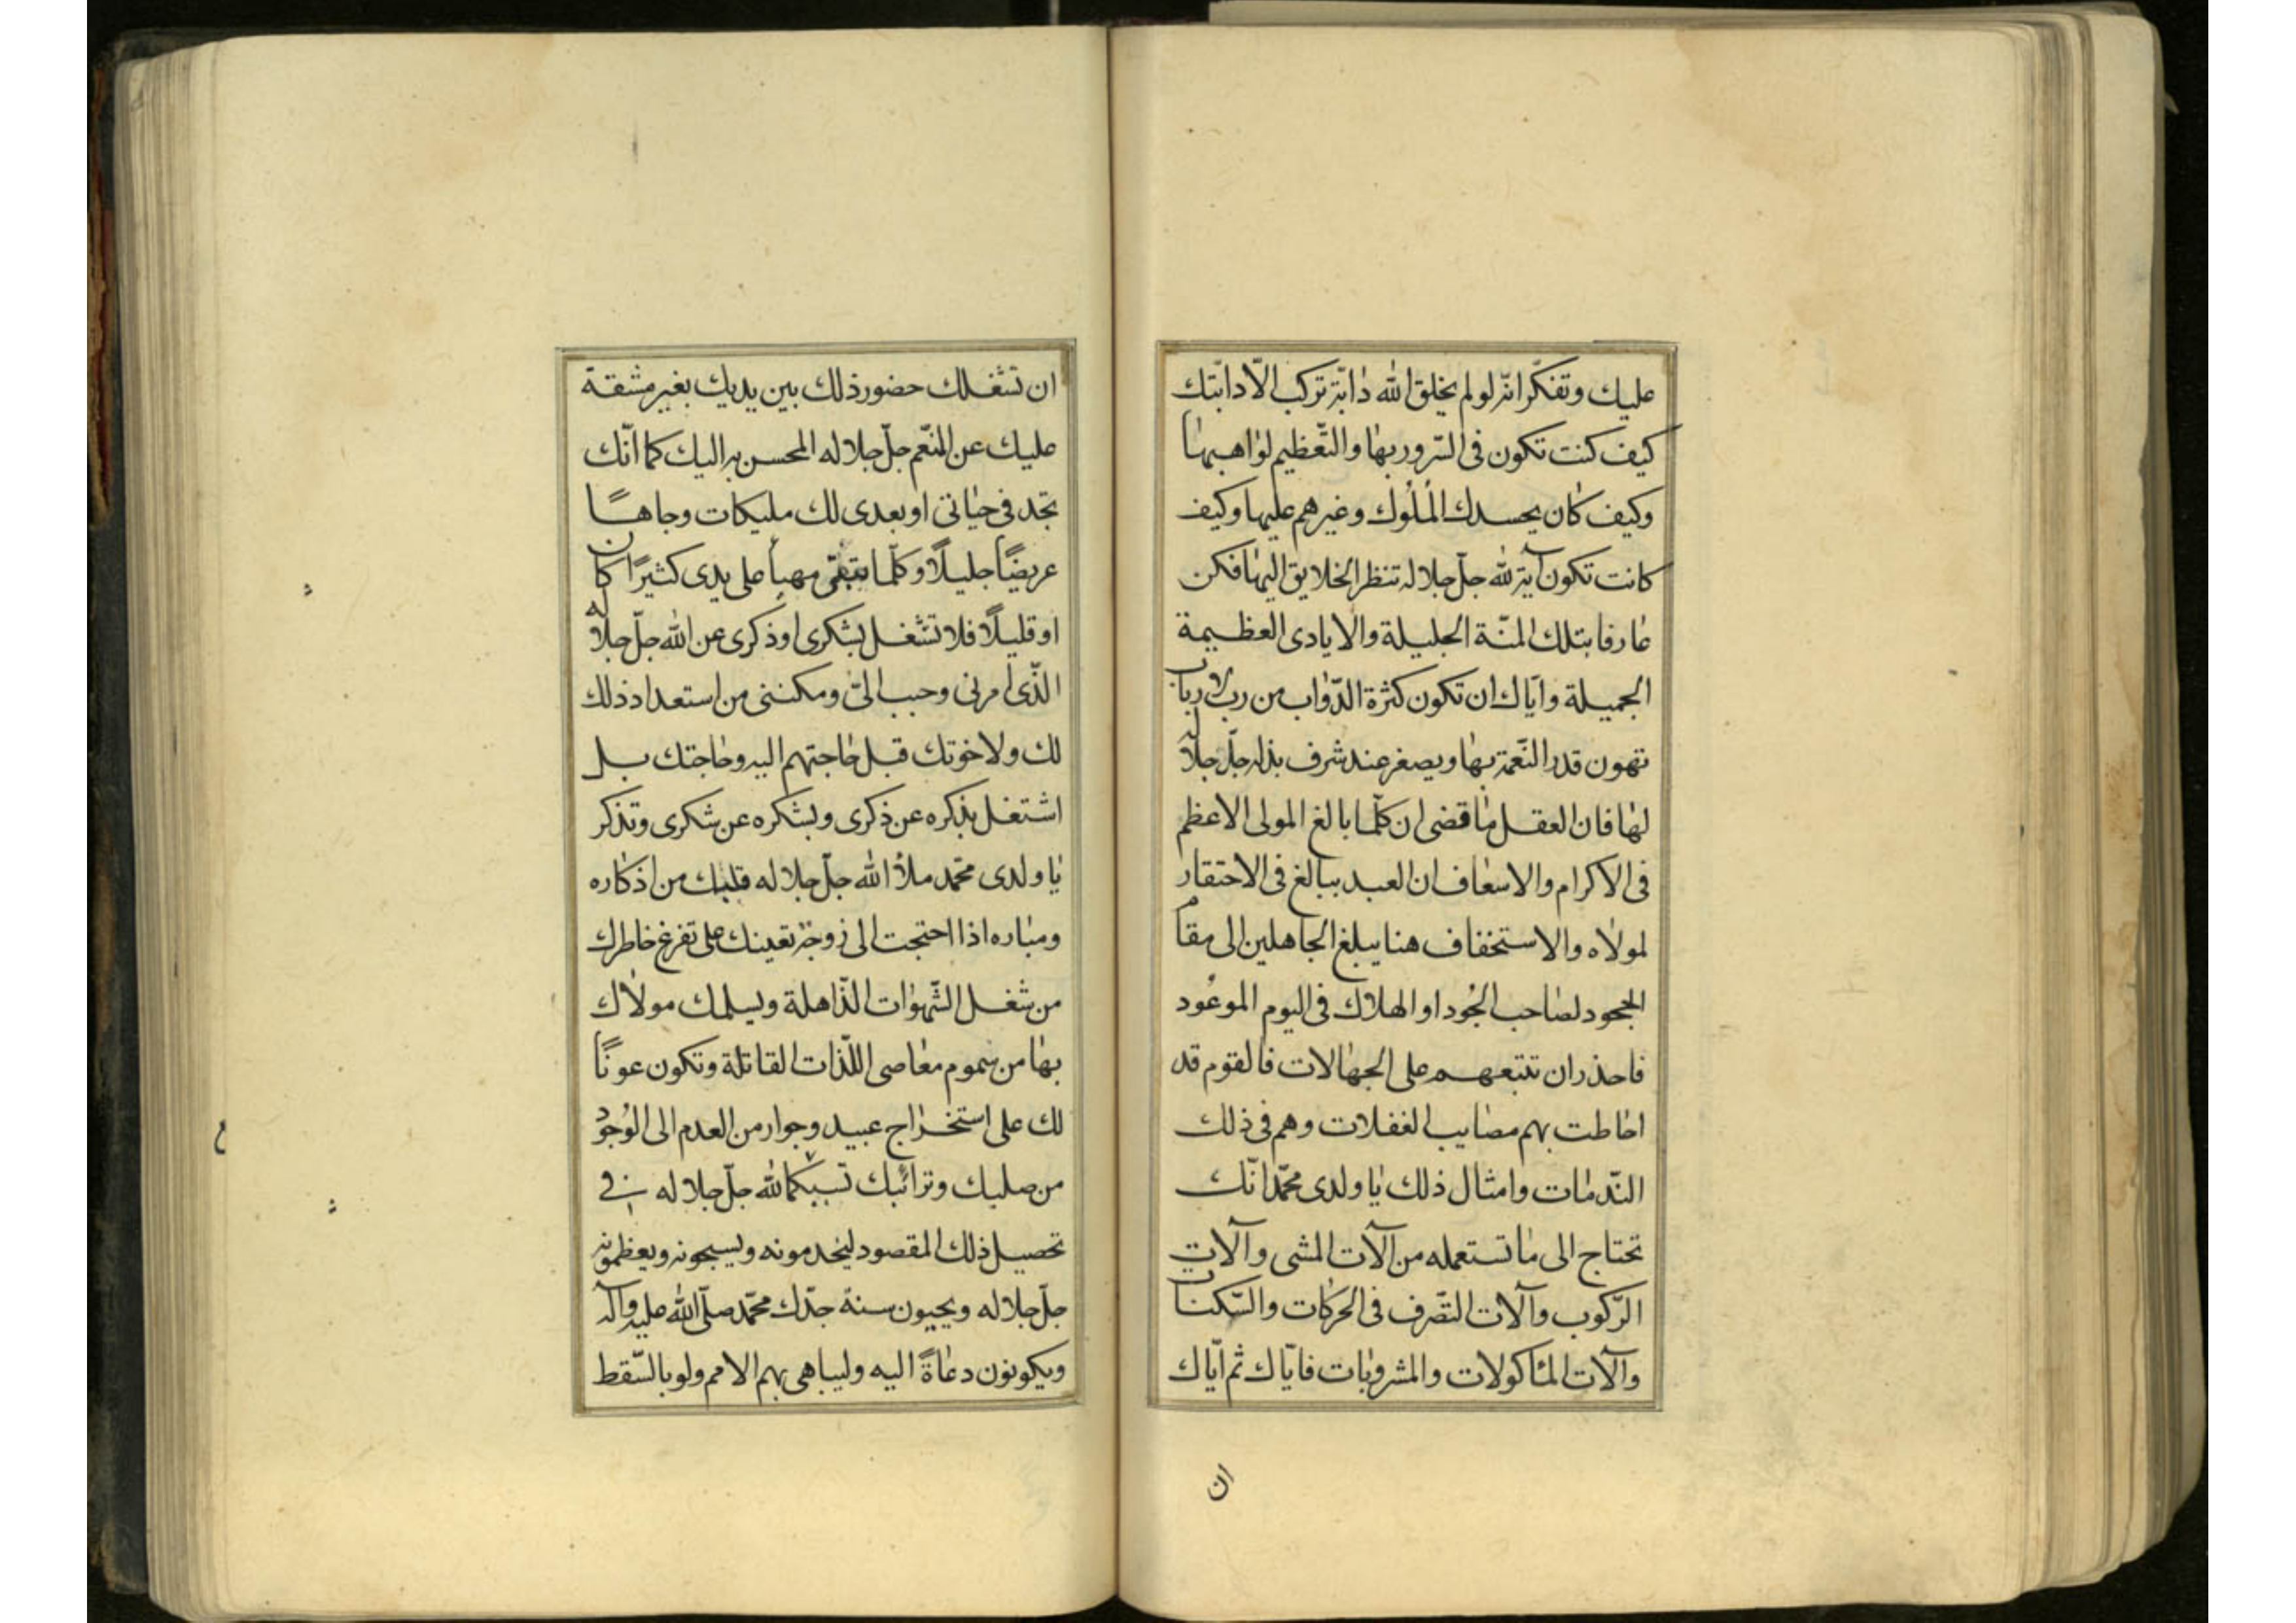 عليك وتفكّر انّه لو لم يخلق الله دابّة تركب الّا دابّتك
كيف كنت تكون فى السّرور بها والتّعظيم لواهبها
وكيف كان يحسدك الملوك وغيرهم عليها وكيف
كانت تكون آية لله جلّ جلاله تنظر الخلايق اليها فكن
عارفا بتلك المنّة الجليلة والايادى العظيمة
الجميلة وايّاك ان تكون كثرة الدّواب من ربّ الارباب
تهون قدر النّعمة بها ويصغر عند شرف بذله جلّ جلاله
لها فان العقل ما قضى ان كلّما بالغ المولى الاعظم
فى الاكرام والاسعاف ان العبد يبالغ فى الاحتقار
لمولاه والاستخفاف هنا يبلغ الجاهلين الى مقام
الجحود لصاحب الجُود او الهلاك فى اليوم الموعُود
فاحذر ان تتبعهم على الجهالات فالقوم قد
احاطت بهم مصايب الغفلات وهم فى ذلك
النّدمات وامثال ذلك يا ولدى محمّد انّك
تحتاج الى ما تستعمله من آلات المشى وآلات
الرّكوب وآلات التصّرف فى الحركات والسّكنات
وآلات المأكولات والمشروبات فايّاك ثم ايّاك
ان
ان تشغلك حضور ذلك بين يديك بغير مشقة
عليك عن المنعّم جلّ جلاله المحسن به اليك كما انّك
تجد فى حياتى او بعدى لك مليكات وجاهًا
عريضًا جليلًا وكلّما يبقى مهيأ على يدى كثيرًا كان
او قليلًا فلا تشغل بشكرى او ذكرى عن الله جلّ جلاله
الذّى امرنى وحبب الىّ ومكننى من استعداد ذلك
لك ولاخوتك قبل حاجتهم اليه وحاجتك بل
اشتغل بذكره عن ذكرى وبشكره عن شكرى وتذكر
يا ولدى محمّد ملأ الله جلّ جلاله قلبك من اذكاره
ومباره اذا احتجت الى زوجة تعينك على تفرغ خاطرك
من شغل الشّهوات الذّاهلة ويسلمك مولاك
بها من سموم معاصى اللّذات القاتلة وتكون عونًا
لك على استخراج عبيد وجوار من العدم الى الوُجود
من صلبك وترائبك تسبّكما لله جلّ جلاله فى
تحصيل ذلك المقصود ليخدمونه ويسبحونه ويعظمونه
جلّ جلاله ويحيون سنة جدّك محمّد صلّى الله عليه وآله
ويكونون دعاةً اليه وليباهى بهم الامم ولو بالسّقط